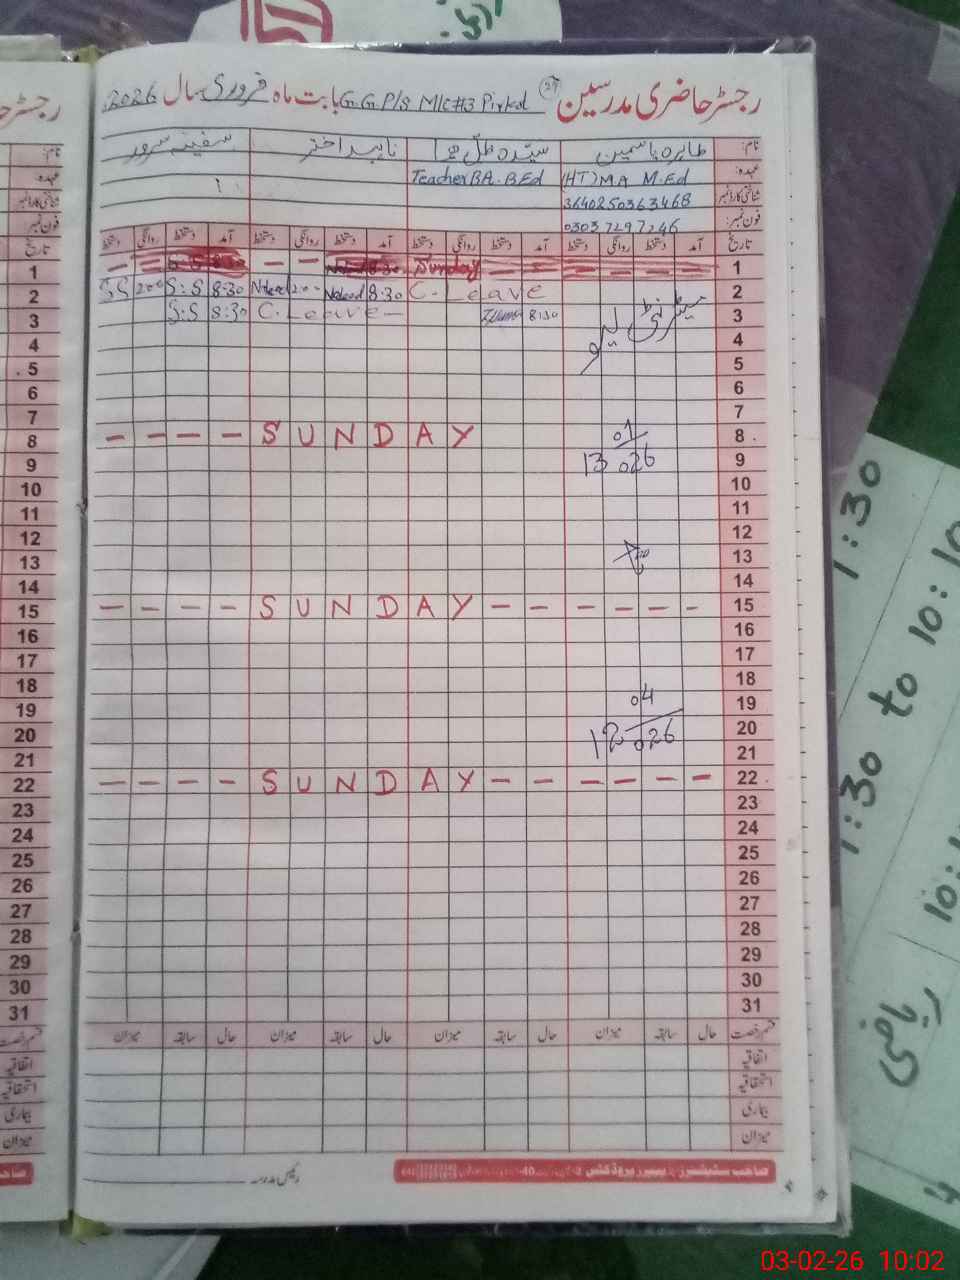 رجسٹر حاضری مدرسین 29 G.G.P/S M/C #3 Pirkot بابت ماہ فروری سال 2026
نام: طاہرہ یاسمین سیدہ ظل ہما ناہید اختر سفینہ سرور
عہدہ: (HT) MA M.Ed Teacher BA. BEd
شناختی کارڈ نمبر 3640250363468
فون نمبر: 0303 7297246
تاریخ آمد دستخط روانگی دستخط آمد دستخط روانگی دستخط آمد دستخط روانگی دستخط آمد دستخط روانگی دستخط
1 — — — — Sunday — — — —
2 C. Leave 8:30 Naheed 2:0 Naheed 8:30 S.S 2:00 S.S
3 میٹرنٹی لیو 8:30 C. Leave — 8:30 S.S
4
5
6
7
8 — — — — S U N D A Y
01
9 13 026
10
11
12
13
14
15 — — — — S U N D A Y — — — — — —
16
17
18
19 04
20 12 026
21
22 — — — — S U N D A Y — — — — — —
23
24
25
26
27
28
29
30
31
قسم رخصت حال سابقہ میزان حال سابقہ میزان حال سابقہ میزان حال سابقہ میزان
اتفاقیہ
استحقاقیہ
بیماری
میزان
رئیس مدرسہ
صاحب سٹیشنرز پیپرز پروڈکٹس
1:30
1:30 to 10:10
10:1
ریاضی
4
03-02-26 10:02